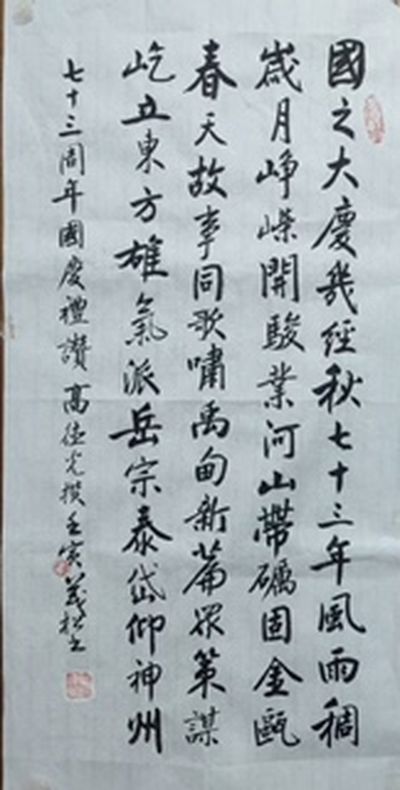 國之大慶幾經秋七十三年風雨稠
歲月崢嶸開駿業河山帶礪固金甌
春天故事同歌嘯禹甸新篇眾策謀
屹立東方雄氣派岳宗泰岱仰神州
七十三周年國慶禮讚 高德光撰 壬寅